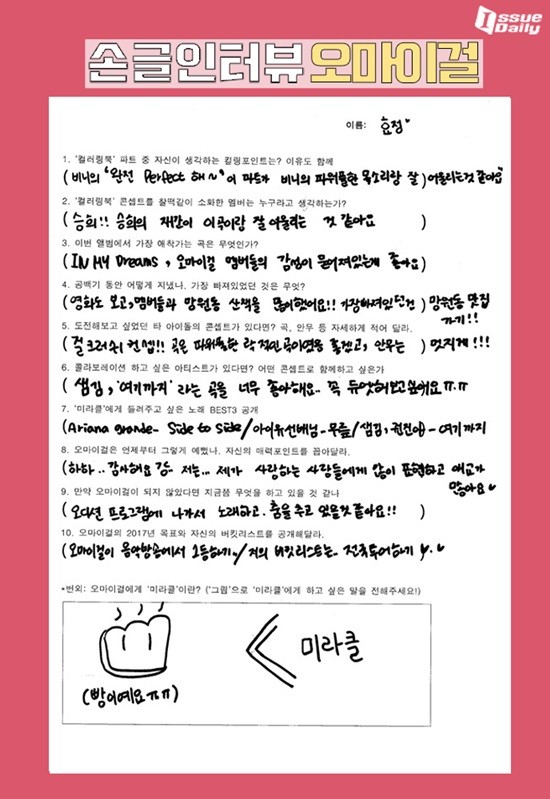 Issue Daily
손글인터뷰 오마이걸
이름: 효정♥
1. '컬러링북' 파트 중 자신이 생각하는 킬링포인트는? 이유도 함께
(비니의 "완전 Perfect 해~"이 파트가 비니의 파워풀한 목소리랑 잘) 어울리는것 같아요"
2. '컬러링북' 콘셉트를 찰떡같이 소화한 멤버는 누구라고 생각하는가?
(승희!! 승희의 재간이 이곡이랑 잘 어울리는 것 같아요)
3. 이번 앨범에서 가장 애착가는 곡은 무엇인가?
(IN MY Dreams, 오마이걸 멤버들의 감성이 묻어져있는게 좋아요)
4. 공백기 동안 어떻게 지냈나. 가장 빠져있었던 것은 무엇?
(영화도 보고, 멤버들과 망원동 산책을 많이했어요!! 가장빠져있던건) 망원동 맛집 가기!!
5. 도전해보고 싶었던 타 아이돌의 콘셉트가 있다면? 곡, 안무 등 자세하게 적어 달라.
(걸크러쉬 컨셉!! 곡은 파워풀한 락적인곡이였음 좋겠고, 안무는) 멋지게!!!
6. 콜라보레이션 하고 싶은 아티스트가 있다면? 어떤 콘셉트로 함께하고 싶은가
(샘김, '여기까지' 라는 곡을 너무 좋아해요.. 꼭 듀엣해보고싶어요ㅠㅠ)
7. '미라클'에게 들려주고 싶은 노래 BEST3 공개
(Ariana grande- Side to Side/아이유선배님-무릎/샘김, 권진아)-여기까지
8. 오마이걸은 언제부터 그렇게 예뻤나. 자신의 매력포인트를 꼽아달라.
(하하.. 감사해요 저는... 제가 사랑하는 사람들에게 많이 표현하고 애교가 많아요♥
9. 만약 오마이걸이 되지 않았다면 지금쯤 무엇을 하고 있을 것 같나
(오디션 프로그램에 나가서 노래하고. 춤을 추고 있을것 같아요!!)
10. 오마이걸의 2017년 목표와 자신의 버킷리스트를 공개해달라.
(오마이걸이 음악방송에서 1등하기./저의 버킷리스트는.. 전국투어하기
*번외: 오마이걸에게 '미라클'이란? ('그림'으로 '미라클'에게 하고 싶은 말을 전해주세요!)
< 미라클
(빵이예요ㅠㅠ)